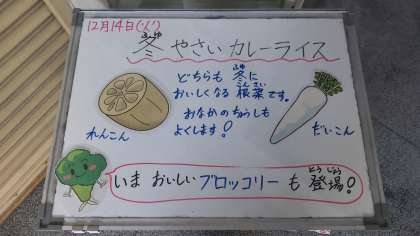 12月14日(火)
冬 やさい カレーライス
ふゆ
どちらも 冬に
ふゆ
おいしくなる 根菜です。
こんさい
おなかの ちょうしも
よくします!
れんこん
だいこん
いま おいしい ブロッコリーも 登場!
とうじょう